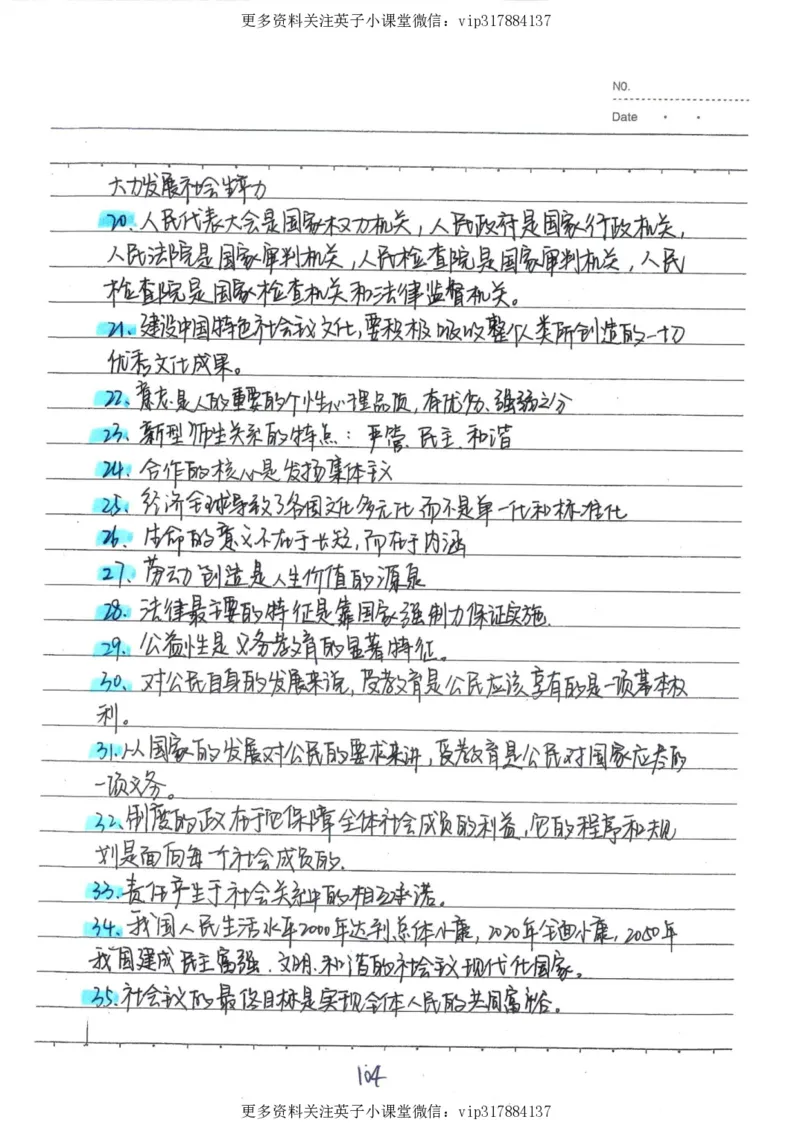 更多资料关注英子小课堂微信：vip317884137
NO.
Date
大力发展社会生产力
20、人民代表大会是国家权力机关，人民政府是国家行政机关，
人民法院是国家审判机关，人民检查院是国家审判机关，人民
检查院是国家检查机关和法律监督机关。
21、建设中国特色社会主义文化，要积极吸收整个人类所创造的一切
优秀文化成果。
22、意志是人的重要的个性心理品质，有优劣、强弱之分
23、新型师生关系的特点：严管、民主、和谐
24、合作的核心是发扬集体主义
25、经济全球导致了各国文化多元化而不是单一化和标准化
26、生命的意义不在于长短，而在于内涵
27、劳动创造是人生价值的源泉
28、法律最主要的特征是靠国家强制力保证实施.
29、公益性是义务教育的显著特征。
30、对公民自身的发展来说，受教育是公民应该享有的是一项基本权
利。
31、从国家的发展对公民的要求来讲，受教育是公民对国家应尽的
一项义务。
32、制度的政在于它保障全体社会成员的利益，它的程序和规
划是面向每一个社会成员的.
33、责任产生于社会关系中的相互承诺。
34、我国人民生活水平2000年达到总体小康，2020年全面小康，2050年
我国建成民主富强、文明、和谐的社会主义现代化国家。
35、社会主义的最终目标是实现全体人民的共同富裕。
104
更多资料关注英子小课堂微信：vip317884137